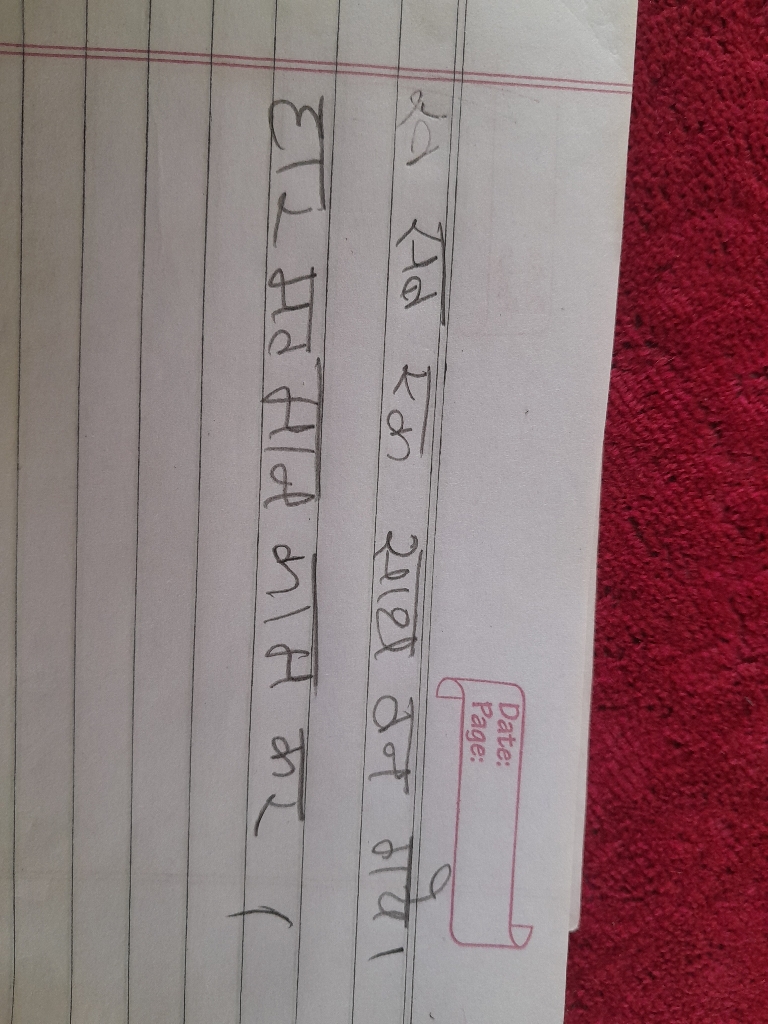 Date:
Page:
सब एक साथ वन गये।
हार मत मान काम कर ।